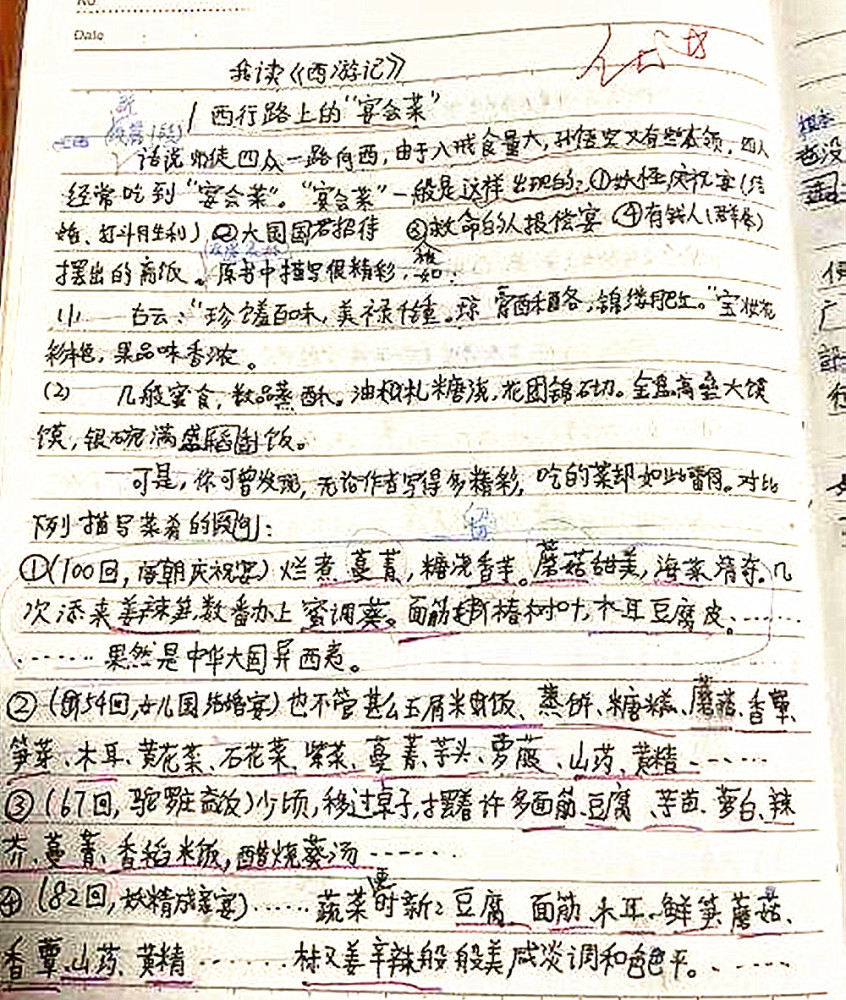 No
Date
我读《西游记》
1 西行路上的"宴会菜"
话说师徒四众一路向西,由于八戒食量大,孙悟空又有些本领,四人
经常吃到"宴会菜"。"宴会菜"一般是这样出现的:①妖怪庆祝宴(结
婚、打斗胜利)②大国国君招待 ③救命的人报偿宴 ④有钱人
摆出的斋饭。原书中描写很精彩,
(1) 古云:"珍馐百味,美禄千钟。琼膏酥酪,锦缕肥红。"宝妆花
彩艳,果品味香浓。
(2) 几般蜜食,数品蒸酥。油札糖浇,花团锦砌。金盘高垒大馍
馍,银碗满盛稻饭。
可是,你可曾发现,无论作者写得多精彩,吃的菜却如此雷同。对比
下列描写菜肴的图例:
①(100回,唐朝庆祝宴)烂煮蔓菁,糖浇香芋。蘑菇甜美,海菜清奇。几
次添来姜辣笋,数番办上蜜调葵。面筋椿树叶,木耳豆腐皮。……
……果然是中华大国异西夷。
②(第54回,女儿国结婚宴)也不管甚么玉屑米饭、蒸饼、糖糕、蘑菇、香蕈、
笋芽、木耳、黄花菜、石花菜、紫菜、蔓菁、芋头、萝菔、山药、黄精……
③(67回,驼罗庄斋饭)少顷,移过桌子,摆着许多面筋、豆腐、芋苗、萝白、辣
芥、蔓菁、香稻米饭,醋烧葵汤……
④(82回,妖精成亲宴)……蔬菜更时新:豆腐、面筋、木耳、鲜笋、蘑菇、
香蕈、山药、黄精……椒姜辛辣般般美,咸淡调和色色平。……